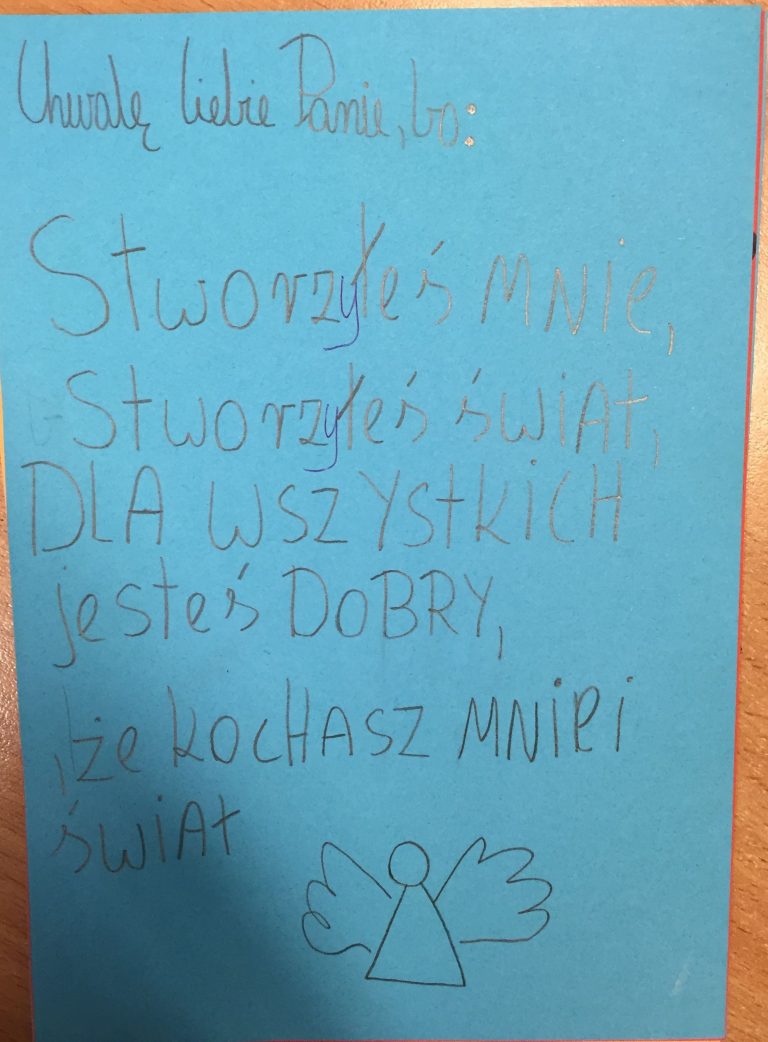 Chwalę Ciebie Panie, bo:
Stworzyłeś MNie,
Stworzyłeś świAt,
DLA WSZYStKiCH
jesteś DoBRY,
, że KOCHASZ MNiei
świAt